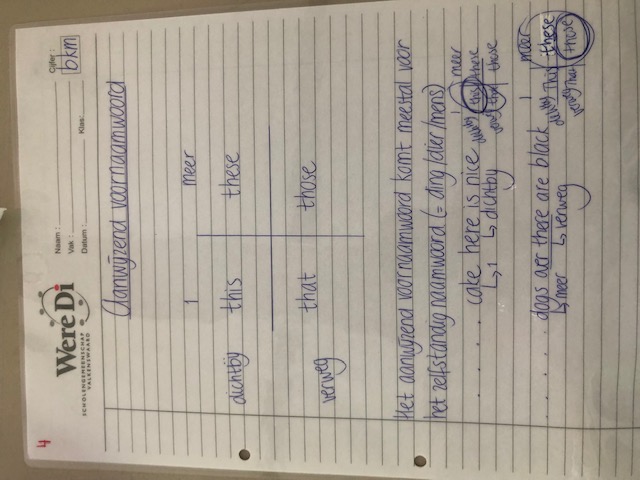 4
Were Di
SCHOLENGEMEENSCHAP
VALKENSWAARD
Naam:
Vak:
Datum: Klas:
Cijfer:
bkm
Aanwijzend voornaamwoord
1 meer
dichtbij this these
verweg that those
Het aanwijzend voornaamwoord komt meestal voor
het zelfstandig naamwoord (= ding/dier/mens)
. . . . . cake here is nice
↳ 1 ↳ dichtbij
1 meer
dichtbij this these
verweg that those
. . . . . dogs over there are black
↳ meer ↳ verweg
1 meer
dichtbij this these
verweg that those